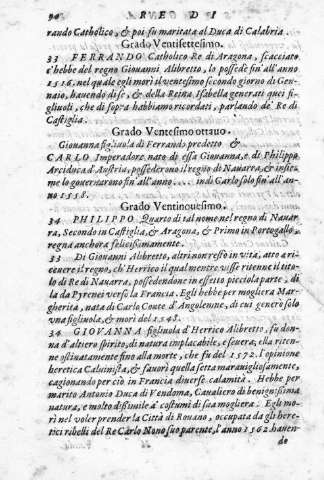 90 RE DI
raudo Catholico, & poi fù maritata al Duca di Calabria.
Grado Ventisettesimo.
33 FERRANDO Catholico Re di Aragona, scacciato
c'hebbe del regno Giouanni Alibretto, lo possedè fin'all'anno
1516. nel quale egli morì il ventesimo secondo giorno di Gen-
naio, hauendo di se, & della Reina Isabella generati quei fi-
gliuoli, che di sopra habbiamo ricordati, parlando de' Re di
Castiglia.
Grado Ventesimo ottauo.
Giouanna figliuola di Ferrando predetto &
CARLO Imperadore, nato di essa Giouanna, e di Philippo
Arciduca d'Austria, possederono il regno di Nauarra, & insie-
me lo gouernarono fin'all'anno .... indi Carlo solo fin'all'an-
no 1558.
Grado Ventinouesimo.
34 PHILIPPO Quarto di tal nome nel regno di Nauar
ra, Secondo in Castiglia, & Aragona, & Primo in Portogallo,
regna anchora felicissimamente.
33 Di Giouanni Alibretto, altri non restò in vita, atto a ri-
ceuere il regno, ch'Herrico il qual mentre visse ritenne il tito-
lo di Re di Nauarra, possedendone in effetto picciola parte, di
la da Pyrenei verso la Francia. Egli hebbe per mogliera Mar-
gherita, nata di Carlo Conte d'Angolemme, di cui generò solo
vna figliuola, & morì del 1548.
34 GIOVANNA figliuola d'Herrico Alibretto, fu don-
na d'altiero spirito, di natura implacabile, e seuera; ella riten-
ne ostinatamente fino alla morte, che fu del 1572. l'opinione
heretica Caluinista, & fauorì quella setta marauigliosamente,
cagionando per ciò in Francia diuerse calamità. Hebbe per
marito Antonio Duca di Vendoma, Caualiero di benignissima
natura, e molto dissimile a' costumi di sua mogliera. Egli mo-
rì nel voler prender la Città di Roano, occupata da gli here-
tici ribelli del Re Carlo Nono suo parente, l'anno 1562. hauen-
do